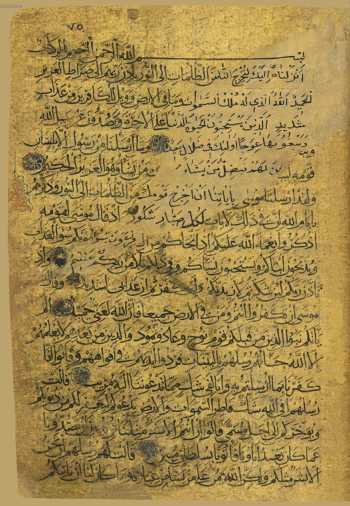 ٧٥
بسم الله الرحمن الرحيم الر كتاب
انزلناه اليك لتخرج الناس من الظلمات الى النور باذن ربهم الى صراط العزيز
الحميد الله الذي له ما في السموات وما في الارض وويل للكافرين من عذاب
شديد الذين يستحبون الحيوة الدنيا على الاخرة ويصدون عن سبيل الله
ويبغونها عوجا اولئك في ضلال بعيد وما ارسلنا من رسول الا بلسان
قومه ليبين لهم فيضل الله من يشاء ويهدي من يشاء وهو العزيز الحكيم
ولقد ارسلنا موسى باياتنا ان اخرج قومك من الظلمات الى النور وذكرهم
بايام الله ان في ذلك لايات لكل صبار شكور واذ قال موسى لقومه
اذكروا نعمة الله عليكم اذ انجاكم من ال فرعون يسومونكم سوء العذاب
ويذبحون ابناءكم ويستحيون نساءكم وفي ذلكم بلاء من ربكم عظيم واذ
تاذن ربكم لئن شكرتم لازيدنكم ولئن كفرتم ان عذابي لشديد وقال
موسى ان تكفروا انتم ومن في الارض جميعا فان الله لغني حميد الم
ياتكم نبا الذين من قبلكم قوم نوح وعاد وثمود والذين من بعدهم لا يعلمهم
الا الله جاءتهم رسلهم بالبينات فردوا ايديهم في افواههم وقالوا انا
كفرنا بما ارسلتم به وانا لفي شك مما تدعوننا اليه مريب قالت
رسلهم افي الله شك فاطر السموات والارض يدعوكم ليغفر لكم من ذنوبكم
ويؤخركم الى اجل مسمى قالوا ان انتم الا بشر مثلنا تريدون ان تصدونا
عما كان يعبد اباؤنا فاتونا بسلطان مبين قالت لهم رسلهم ان نحن
الا بشر مثلكم ولكن الله يمن على من يشاء من عباده وما كان لنا ان ناتيكم